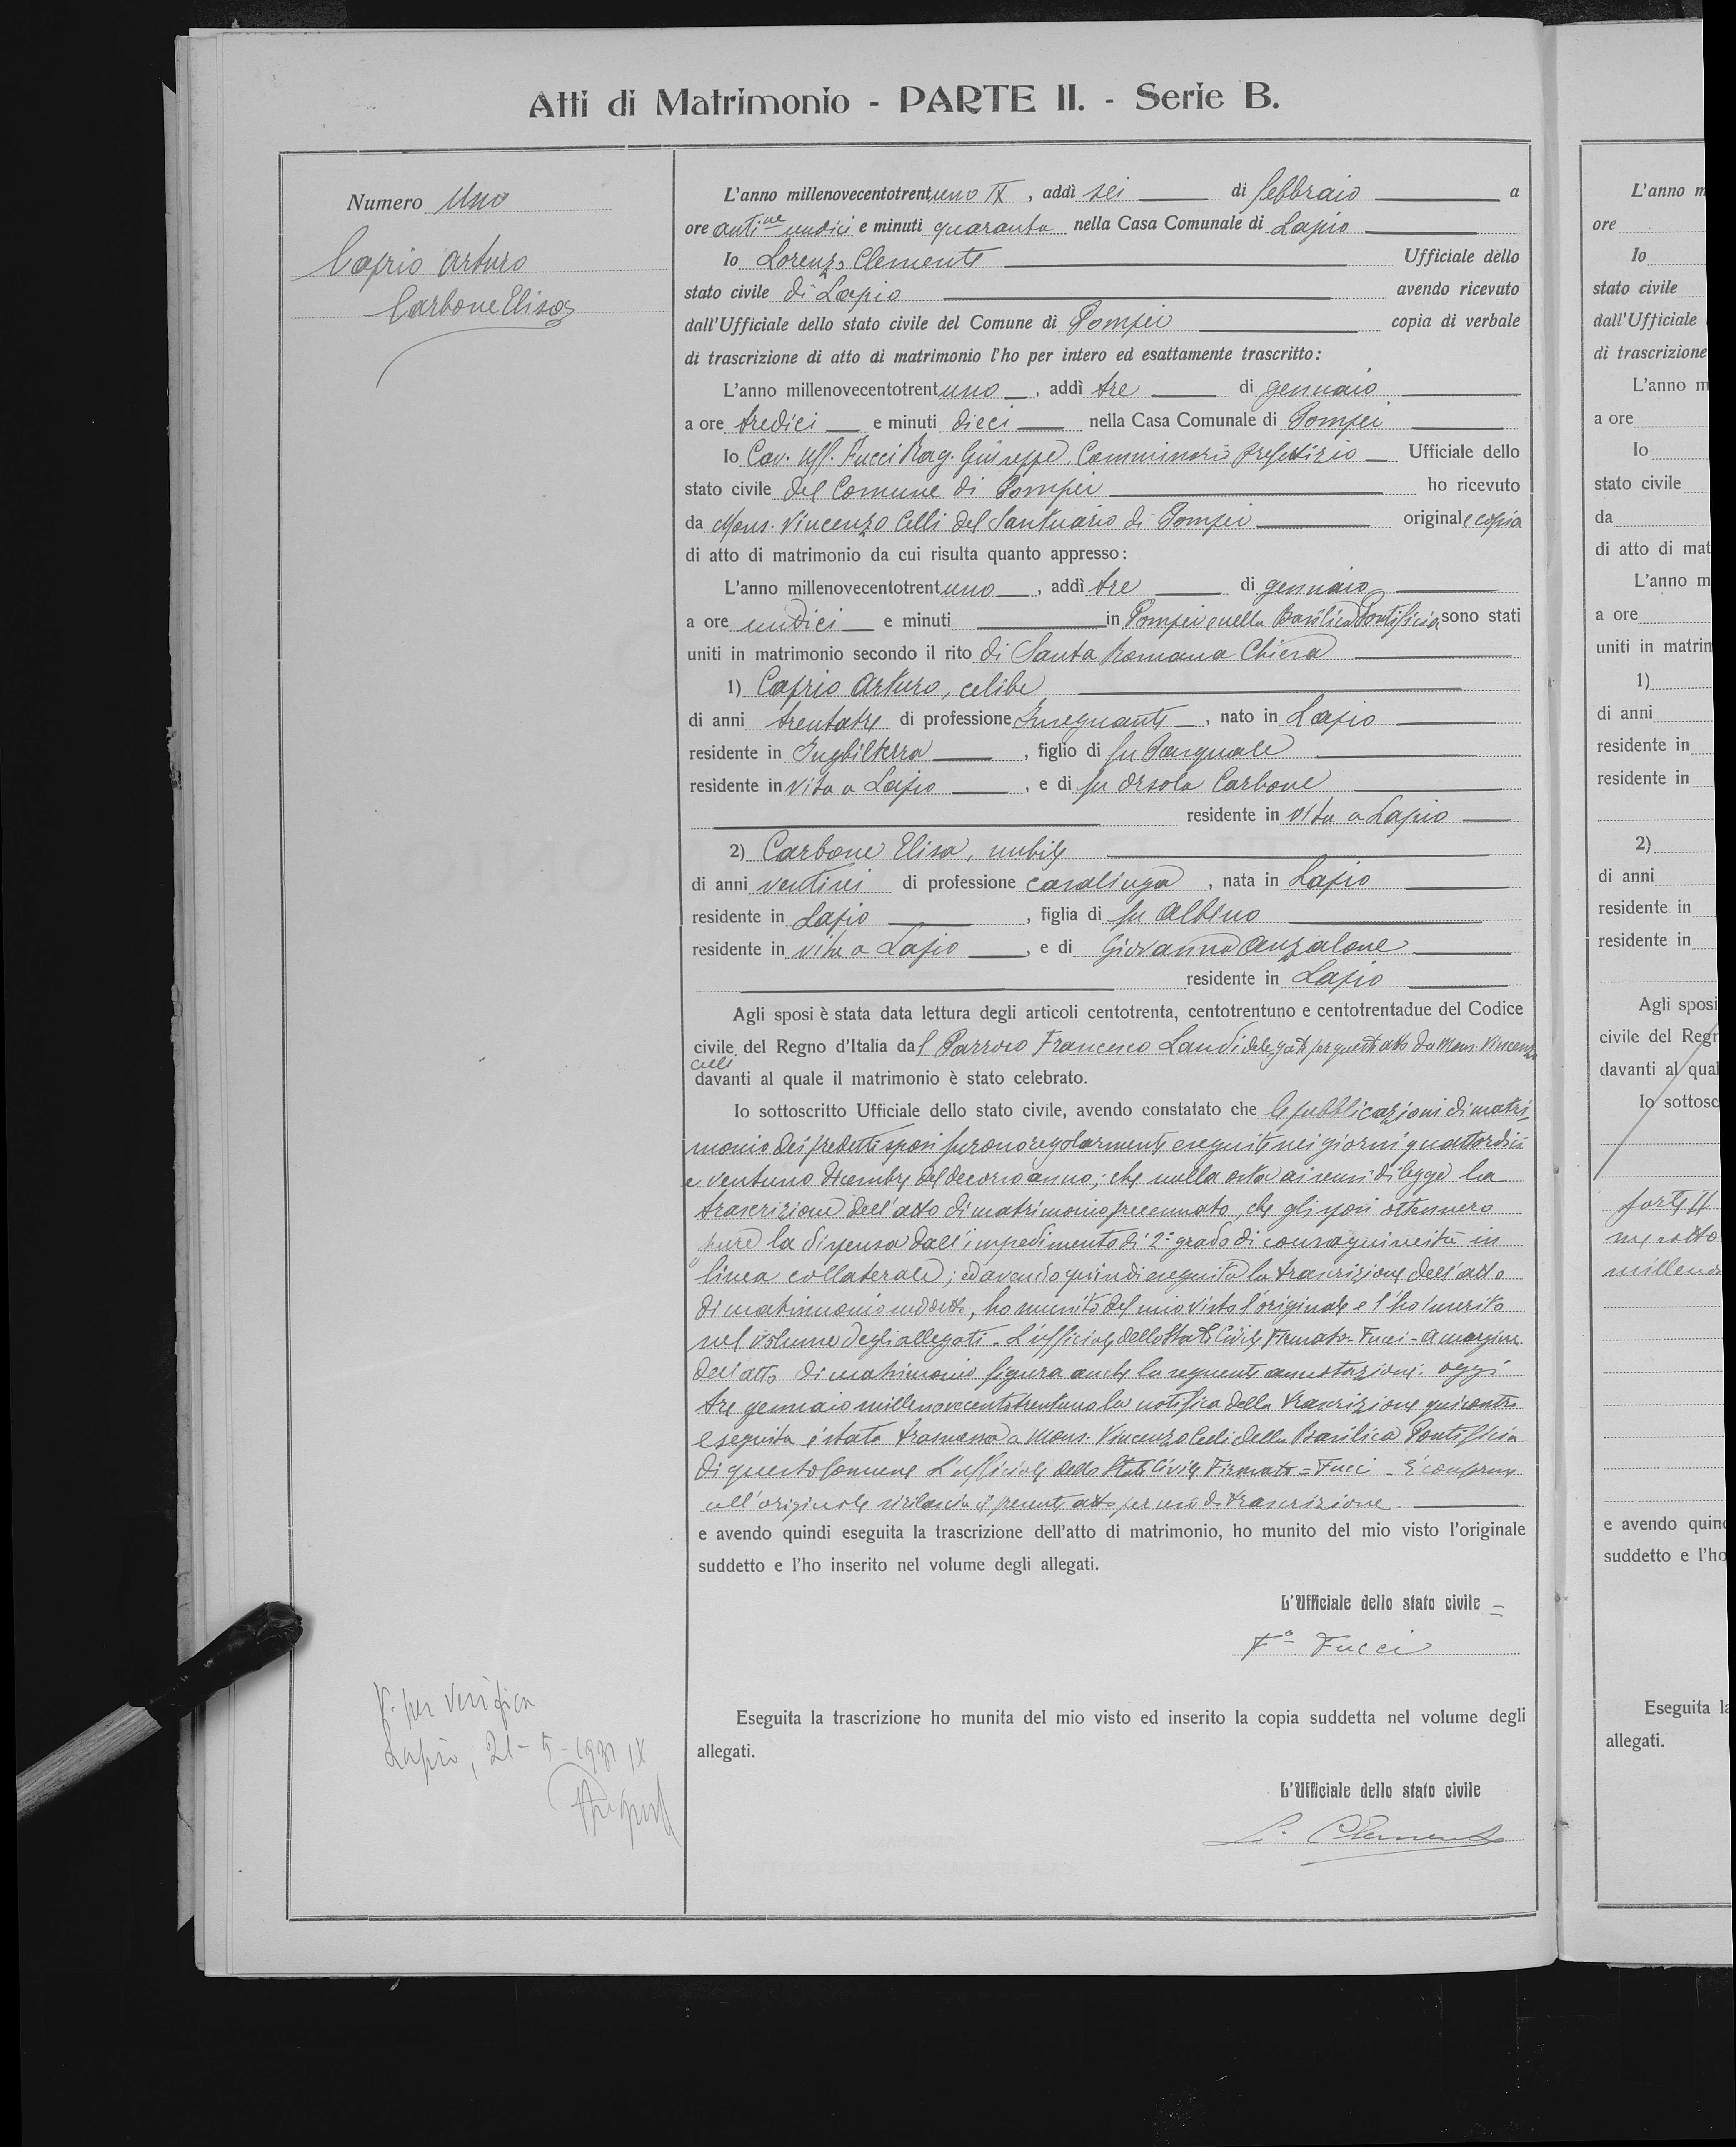 Atti di Matrimonio - PARTE II. - Serie B.
Numero Uno
Caprio Arturo
Carbone Elisa
L'anno millenovecentotrentuno IX, addì sei di febbraio a
ore anti.ne undici e minuti quaranta nella Casa Comunale di Lapio
Io Lorenzo Clemente Ufficiale dello
stato civile di Lapio avendo ricevuto
dall'Ufficiale dello stato civile del Comune di Pompei copia di verbale
di trascrizione di atto di matrimonio l'ho per intero ed esattamente trascritto:
L'anno millenovecentotrentuno, addì tre di gennaio
a ore tredici e minuti dieci nella Casa Comunale di Pompei
Io Cav. Uff. Fucci Rag. Giuseppe, Commissario prefettizio Ufficiale dello
stato civile del Comune di Pompei ho ricevuto
da Mons. Vincenzo Celli del Santuario di Pompei originale copia
di atto di matrimonio da cui risulta quanto appresso:
L'anno millenovecentotrentuno, addì tre di gennaio
a ore undici e minuti in Pompei e nella Basilica Pontificia sono stati
uniti in matrimonio secondo il rito di Santa Romana Chiesa
1) Caprio Arturo, celibe
di anni trentatre di professione Insegnante, nato in Lapio
residente in Inghilterra, figlio di fu Pasquale
residente in vita a Lapio, e di fu Orsola Carbone
residente in vita a Lapio
2) Carbone Elisa, nubile
di anni ventisei di professione casalinga, nata in Lapio
residente in Lapio, figlia di fu Albino
residente in vita a Lapio, e di Giovanna Anzalone
residente in Lapio
Agli sposi è stata data lettura degli articoli centotrenta, centotrentuno e centotrentadue del Codice
civile del Regno d'Italia dal Parroco Francesco Landi delegato per questo atto da Mons. Vincenzo
Celli
davanti al quale il matrimonio è stato celebrato.
Io sottoscritto Ufficiale dello stato civile, avendo constatato che le pubblicazioni di matri-
monio dei predetti sposi furono regolarmente eseguite nei giorni quattordici
e ventuno dicembre del decorso anno; che nulla osta ai sensi di legge la
trascrizione dell'atto di matrimonio precennato, che gli sposi ottennero
pure la dispensa dall'impedimento di 2° grado di consaguineità in
linea collaterale; ed avendo quindi eseguita la trascrizione dell'atto
di matrimonio suddetto, ho munito del mio visto l'originale e l'ho inserito
nel volume degli allegati - L'ufficiale dello Stato Civile Firmato - Fucci - A margine
dell'atto di matrimonio figura anche la seguente annotazione: oggi
tre gennaio millenovecentotrentuno la notifica della trascrizione qui contro
eseguita è stata trasmessa a Mons. Vincenzo Celli della Basilica Pontificia
di questo Comune L'ufficiale dello Stato Civile Firmato = Fucci - È conforme
all'originale si rilascia il presente atto per uso di trascrizione
e avendo quindi eseguita la trascrizione dell'atto di matrimonio, ho munito del mio visto l'originale
suddetto e l'ho inserito nel volume degli allegati.
L'Ufficiale dello stato civile =
F° Fucci
Eseguita la trascrizione ho munita del mio visto ed inserito la copia suddetta nel volume degli
allegati.
L'Ufficiale dello stato civile
L. Clemente
V. per verifica
Lapio, 21-5-1931 IX
L'anno m
ore
Io
stato civile
dall'Ufficiale
di trascrizione
L'anno m
a ore
Io
stato civile
da
di atto di mat
L'anno m
a ore
uniti in matrim
1)
di anni
residente in
residente in
2)
di anni
residente in
residente in
Agli sposi
civile del Regn
davanti al qual
Io sottosc
millen
e avendo quind
suddetto e l'ho
Eseguita la
allegati.